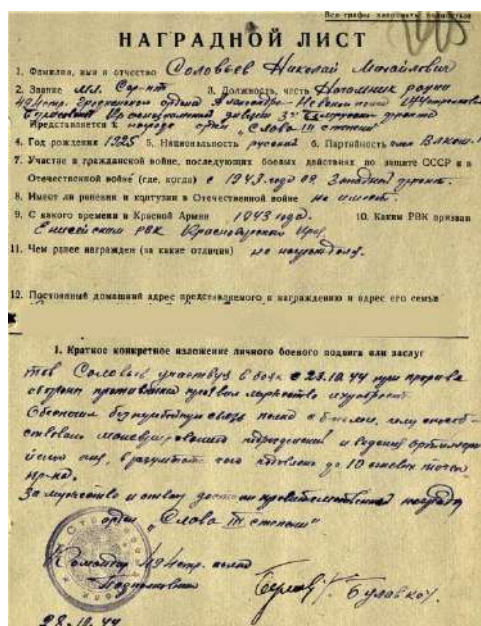 Все графы заполнять полностью
НАГРАДНОЙ ЛИСТ
1. Фамилия, имя и отчество Соловьев Николай Михайлович
2. Звание мл. Сер-нт 3. Должность, часть Наводчик рации
49 стр. ордена Александра Невского
дивизии 3го Белорусского фронта
Представляется к награде орден „Слава III степени"
4. Год рождения 1925 5. Национальность русский 6. Партийность член ВЛКСМ
7. Участие в гражданской войне, последующих боевых действиях по защите СССР и в
Отечественной войне (где, когда) с 1943 года Западный фронт.
8. Имеет ли ранения и контузии в Отечественной войне не имеет.
9. С какого времени в Красной Армии 1943 года. 10. Каким РВК призван
Енисейским РВК Красноярский Край
11. Чем ранее награжден (за какие отличия) не награжден.
12. Постоянный домашний адрес представляемого к награждению и адрес его семьи
I. Краткое конкретное изложение личного боевого подвига или заслуг
тов Соловьев участвуя в боях с 23.10.44 при прорыве
обороны противника проявил мужество и
Обеспечил бесперебойную связь полка с б-ми, чему способ-
ствовал маневрированию подразделений и ведению артиллерий
огня, в результате чего подавлено до 10 огневых точек
пр-ка.
За мужество и отвагу достоин правительственной награды
орден „Слава III степени"
Командир 49 стр. полка
Подполковник Булавко
28.10.44